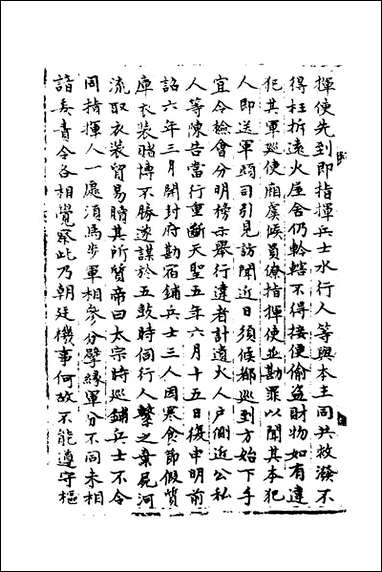 揮使先到即指揮兵士水行人等與本主同共救潑不
得枉拆遠火屋舍仍鈐轄不得接便偷盜財物如有違
犯其軍巡使廂虞候員僚指揮使並勘罪以聞其本犯
人即送軍頭司引見訪聞近日須候鄰巡到方始下手
宜令檢會分明榜示舉行違者計遺火人戶側近公私
人等陳告當行重斷天聖五年六月十五日復申明前
詔六年三月開封府勘宿鋪兵士三人因寒食節假質
庫衣裝賭博不勝遂謀於五鼓時伺行人擊之棄屍河
流取衣裝貿易贖其所質帝曰太宗時巡鋪兵士不令
同指揮人一處須馬步軍相參分擘緣軍分不同未相
諳委責令各相覺察此乃朝廷機事何故不能遵守樞